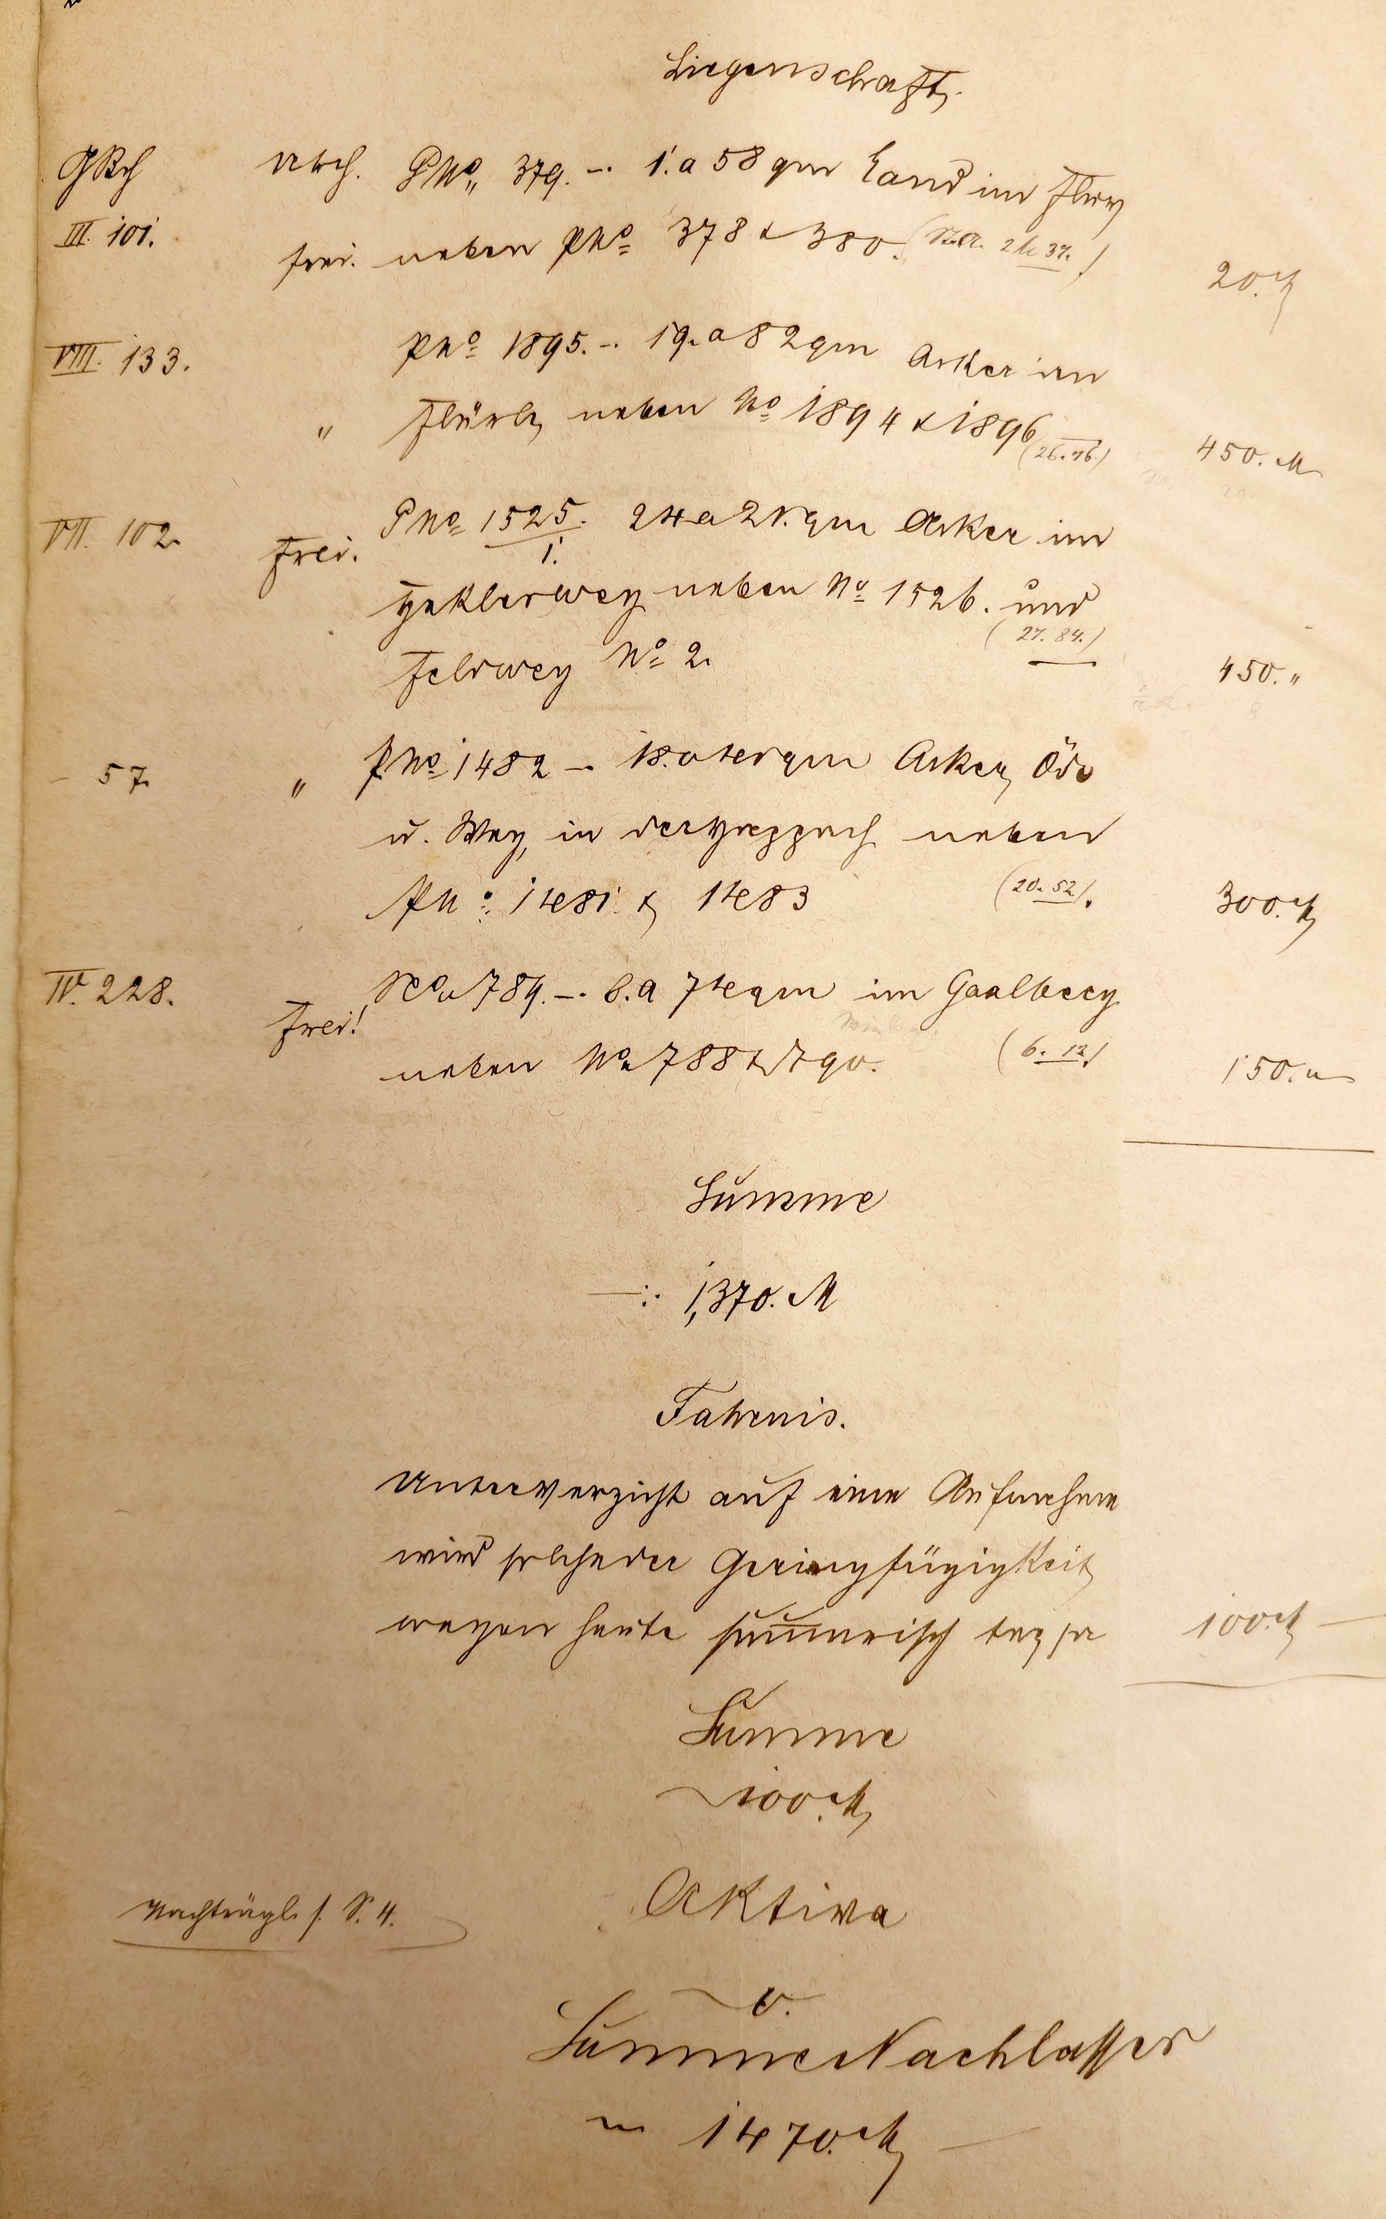 Liegenschaft.
GBch
III. 101.
frei.
PNo. 379. – 1.a 58 qm Land im Flur
neben PNo. 378 & 380.
20. M
VIII. 133.
"
PNo. 1895. – 19.a 82 qm Acker im
neben No. 1894 & 1896
(26.76.)
450. M
VII. 102.
Frei.
PNo. 1525. 24 a 21. qm Acker im
1.
neben No. 1526. und
(27. 84.)
Feldweg No. 2.
450. "
– 57.
"
PNo. 1482 – 18. a 40 qm Acker, Öde
u. Weg, in der neben
PNo. 1481 & 1483
(20. 52).
300. M
IV. 228.
Frei!
No. 789. – 8.a 74 qm im Gaalberg
neben No. 788 & 790.
(6. 12.)
150. "
Summe
–: 1,370. M
Fahrnis.
Unter Verzicht auf eine Aufnahme
wird solche der Geringfügigkeit
wegen heute summarisch
100. M –
Summe
100. M
Nachträgl. s. S. 4.
Aktiva
o.
Summe Nachlasses
1470. M –